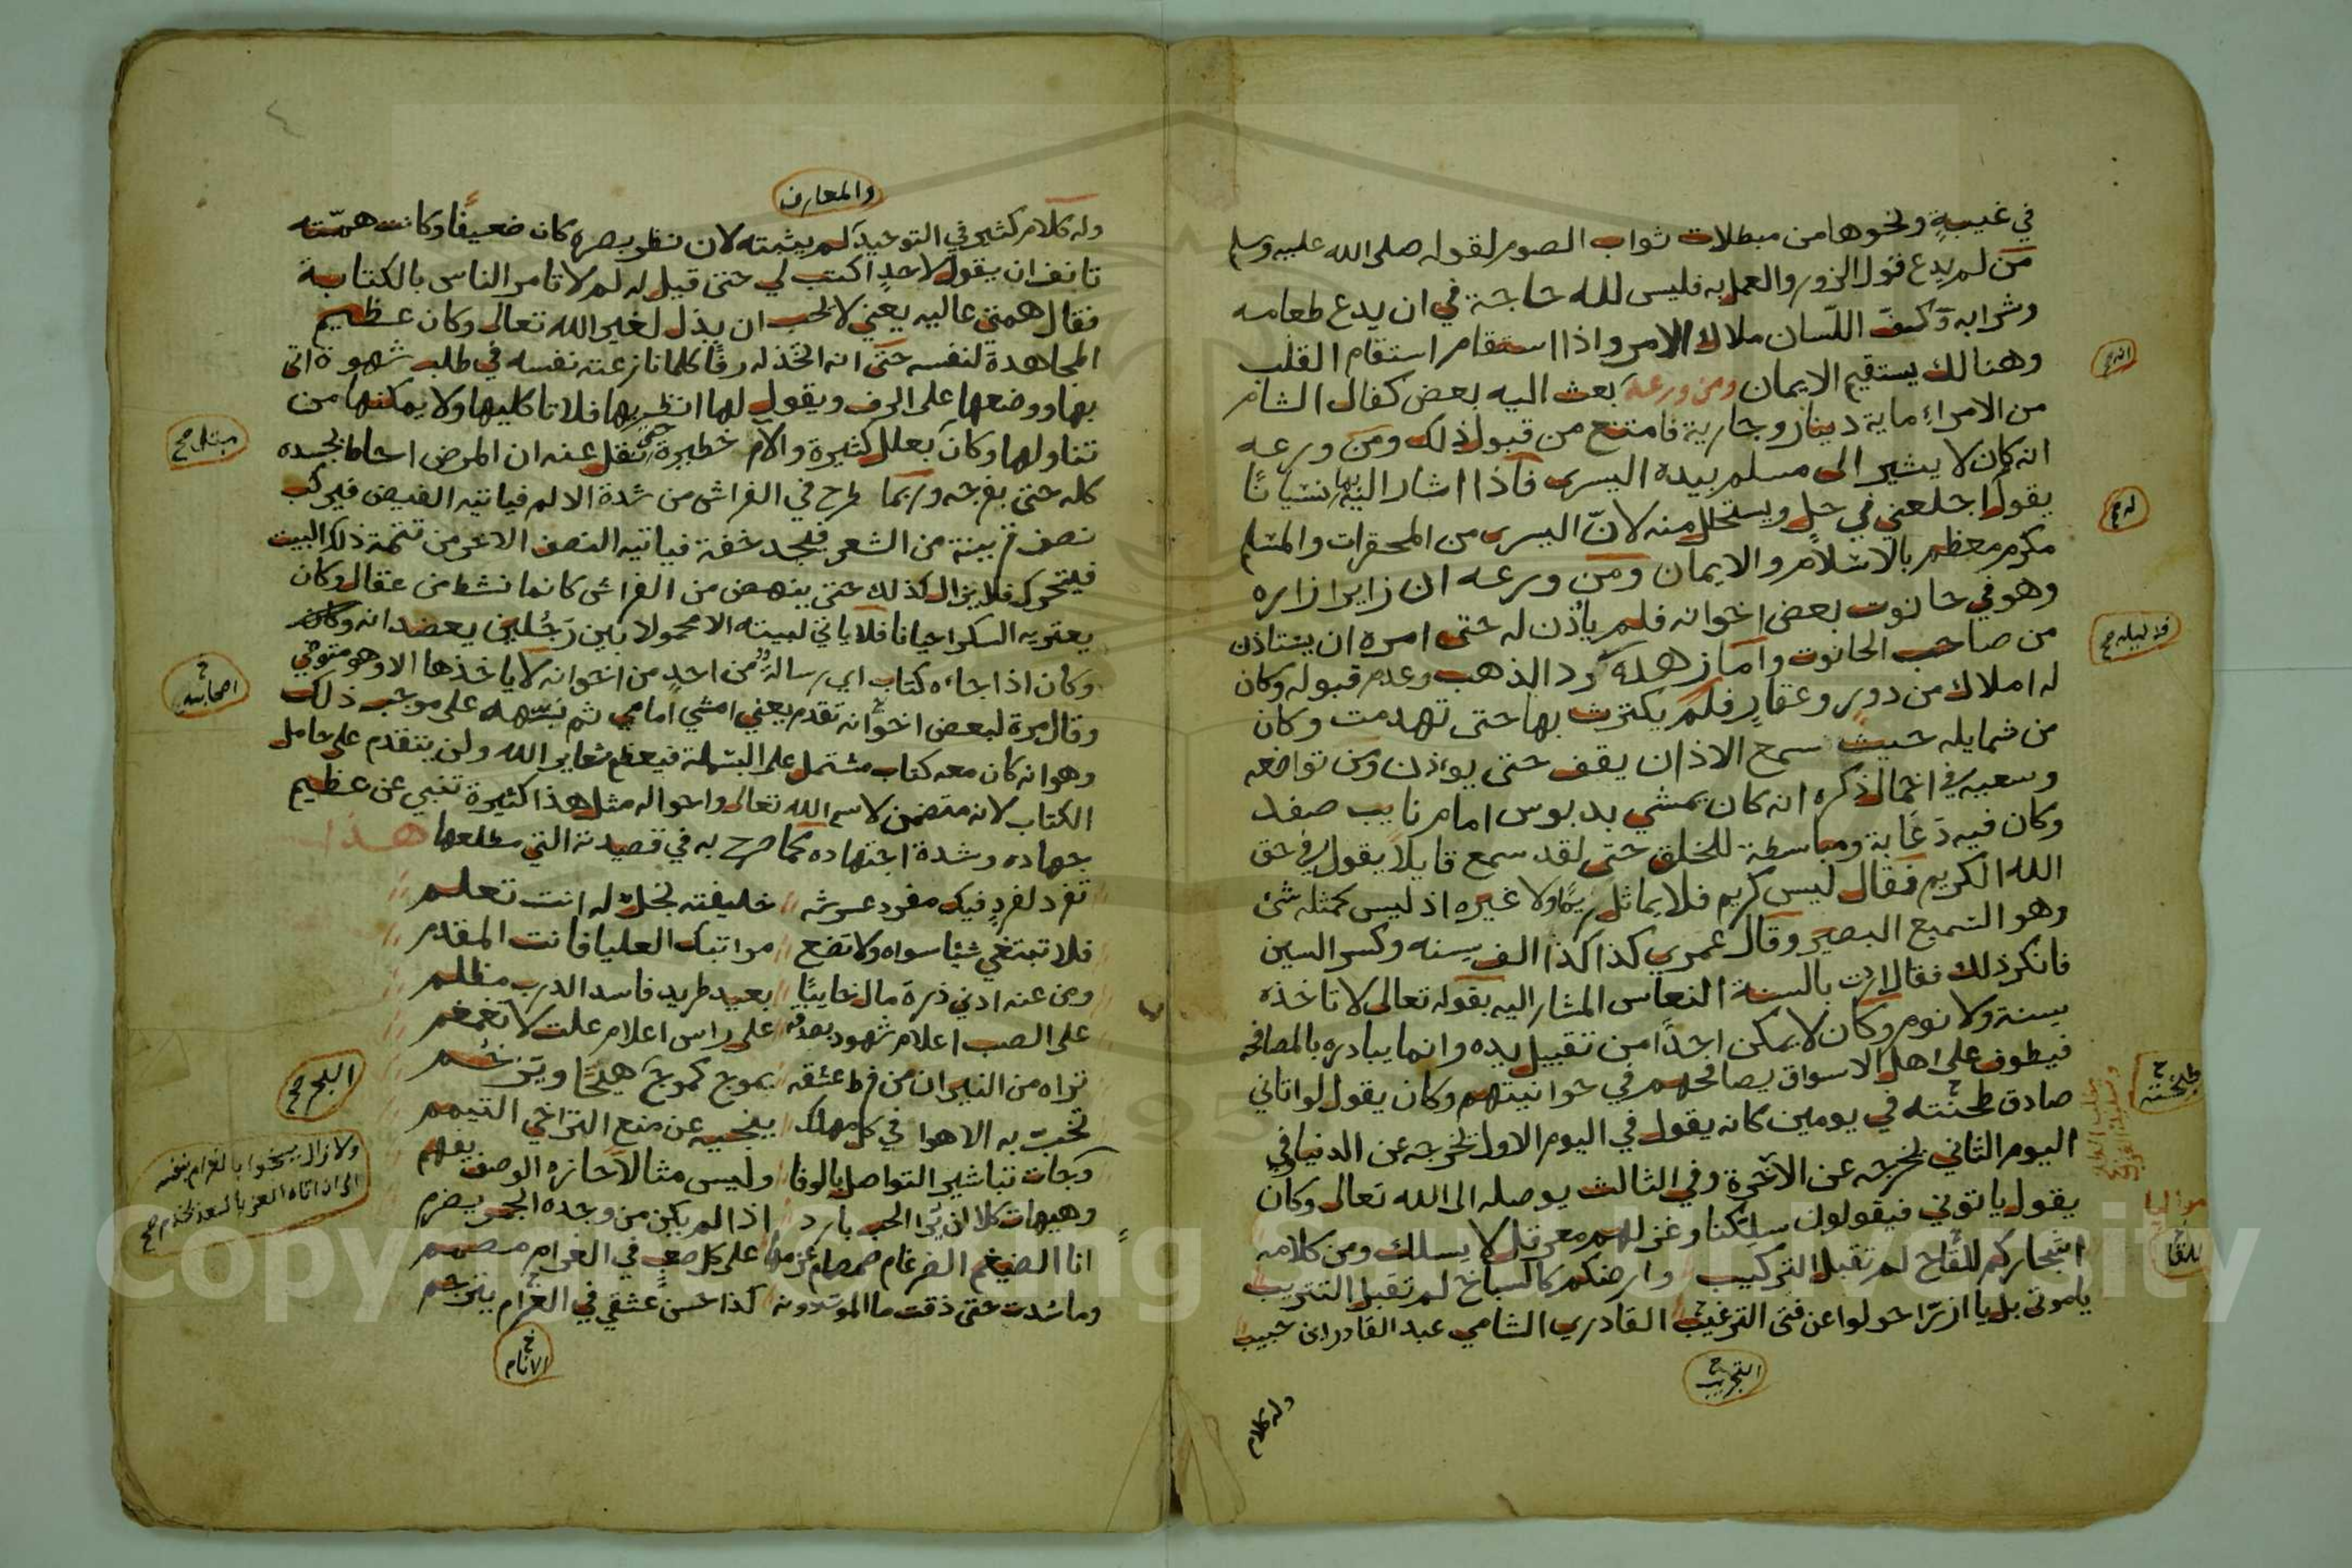 في غيبةٍ ونحوها من مبطلات ثواب الصوم لقوله صلى الله عليه وسلم
من لم يدع قول الزور والعمل به فليس لله حاجة في ان يدع طعامه
وشرابه وكفّ اللّسان ملاك الامر واذا استقام استقام القلب
وهنالك يستقيم الايمان ومن ورعه بعث اليه بعض كفال الشام
من الامراء ماية دينار وجارية فامتنع من قبول ذلك ومن ورعه
انه كان لا يشير الى مسلم بيده اليسرى فاذا اشار اليه بها نسيانًا
يقول اجلعني في حل ويستحلل منه لانّ اليسرى من المحقرات والمسلم
مكرم معظم بالاسلام والايمان ومن ورعه ان زايرا زاره
وهو في حانوت بعض اخوانه فلم يأذن له حتى امره ان يستاذن
من صاحب الحانوت واما زهده رد الذهب وعدم قبوله وكان
له املاك من دور وعقار فلم يكترث بها حتى تهدمت وكان
من شمايله حيث سمع الاذان يقف حتى يوذن ومن تواضعه
وسعيه في اخمال ذكره انه كان يمشي بدبوس امام نايب صفد
وكان فيه دعابة ومباسطة للخلق حتى لقد سمع قايلًا يقول في حق
الله الكريم فقال ليس كريم فلا يماثل ولا غيره اذ ليس كمثله شئ
وهو السميع البصير وقال عمري كذا كذا الف سنه وكسر السين
فانكر ذلك فقال اردت بالسنة النعاس المشار اليه بقوله تعالى لا تاخذه
سنة ولا نوم وكان لا يمكن احدًا من تقبيل يده وانما يبادره بالمصافحه
فيطوف على اهل الاسواق يصافحهم في حوانيتهم وكان يقول لو اتاني
صادق طحنته في يومين كانه يقول في اليوم الاول نخرجه عن الدنيا وفي
اليوم الثاني نخرجه عن الآخرة وفي الثالث يوصله الى الله تعالى وكان
يقول ياتوني فيقولون سلّكنا وعزلهم معرقل لا يسلك ومن كلامه
اشجاركم للقاح لم تقبل التركيب وارضكم كالسباخ لم تقبل التتريب
يا موتى بل يا حولوا عن فتى الترغيب القادري الشامي عبد القادر ابن حبيب
التجريب
وله كلام
طبخته
للقا
والمعارف
وله كلام كثير في التوحيد لم يثبته لان نظر بصره كان ضعيفًا وكانت همّته
تانف ان يقول لاحدٍ اكتب لي حتى قيل له لم لا تامر الناس بالكتابة
فقال همتي عاليه يعني لا تحب ان يذل لغير الله تعالى وكان عظيم
المجاهدة لنفسه حتى انه اتخذ له رفًا كلما نازعته نفسه في طلب شهوة اتى
بها ووضعها على الرف ويقول لها انظريها فلا تاكليها ولا يمكنها من
تناولها وكان بعلل كثيرة والام خطيرة حتى نقل عنه ان المرض احاط بجسده
كله حتى بفرجه وربما طرح في الفراش من شدة الالم فياتيه الفيض فيركب
نصف بينة من الشعر فيجد خفة فياتيه النصف الاخر من تتمة ذلك البيت
فيتحرك فلا يزال كذلك حتى ينهض من الفراش كانما نشط من عقال وكان
يعتريه السكر احيانا فلا ياتي لبيته الا محمولا بين رجُلين يعضدانه وكان
وكان اذا جاءه كتاب اي رسالة من احدٍ من اخوانه لا ياخذها الا وهو متوضي
وقال مرة لبعض اخوانه تقدم يعني امشي امامي ثم نبّهه على موجب ذلك
وهو انه كان معه كتاب مشتمل على البسملة فيعظم شعاير الله ولن يتقدم على حامل
الكتاب لانه متضمن لاسم الله تعالى واحواله مثل هذا كثيرة تنبي عن عظيم
جهاده وشدة اجتهاده كما صرح به في قصيدته التي مطلعها هذا
تفرد لفردٍ فيك مفرد عرشه خليفته نجل له انت تعلم
فلا تبتغي شيًا سواه ولا تضع مراتبك العليا فانت المقدم
ومن عنه ادنى ذرة مال خايبًا بعيد طريد فاسد الدرب مظلم
على الصب اعلام شهود بصدقه على راس اعلام علت لا تغمغم
تراه من النيران من فرط عشقه يموج كموج هيّجا ويزخم
تخبّ به الاهوا في كل مهلك ينجيه عن منع التراخي التيمم
وجات تباشير التواصل بالوفا وليس مثالا حازه الوصف يفهم
وهيهات كلا ان يُرا الحب بارد اذا لم يكن من وجده الجمر يضرم
انا الضيغم الضرغام صمصام عزمها على كل صعبٍ في الغرام مصمم
وما سُدت حتى ذقت ما الموت دونه كذا حسن عشقي في الغرام يترجم
الانام
مبتلى صح
اصحابه
البحر صح
ولا زال يسخوا بالغرام بنفسه
الى ان اتاه العز بالسعد يخدم صح